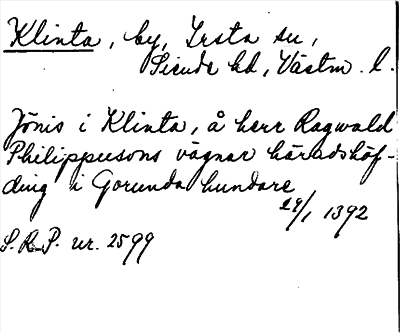 Klinta, by, Irsta sn,
Siende hd, Västm. l.
Jönis i Klinta, å herr Ragwald
Philippusons vägnar häradshöf-
ding i Gorunda hundare
29/1 1392
S.R.P. nr. 2599